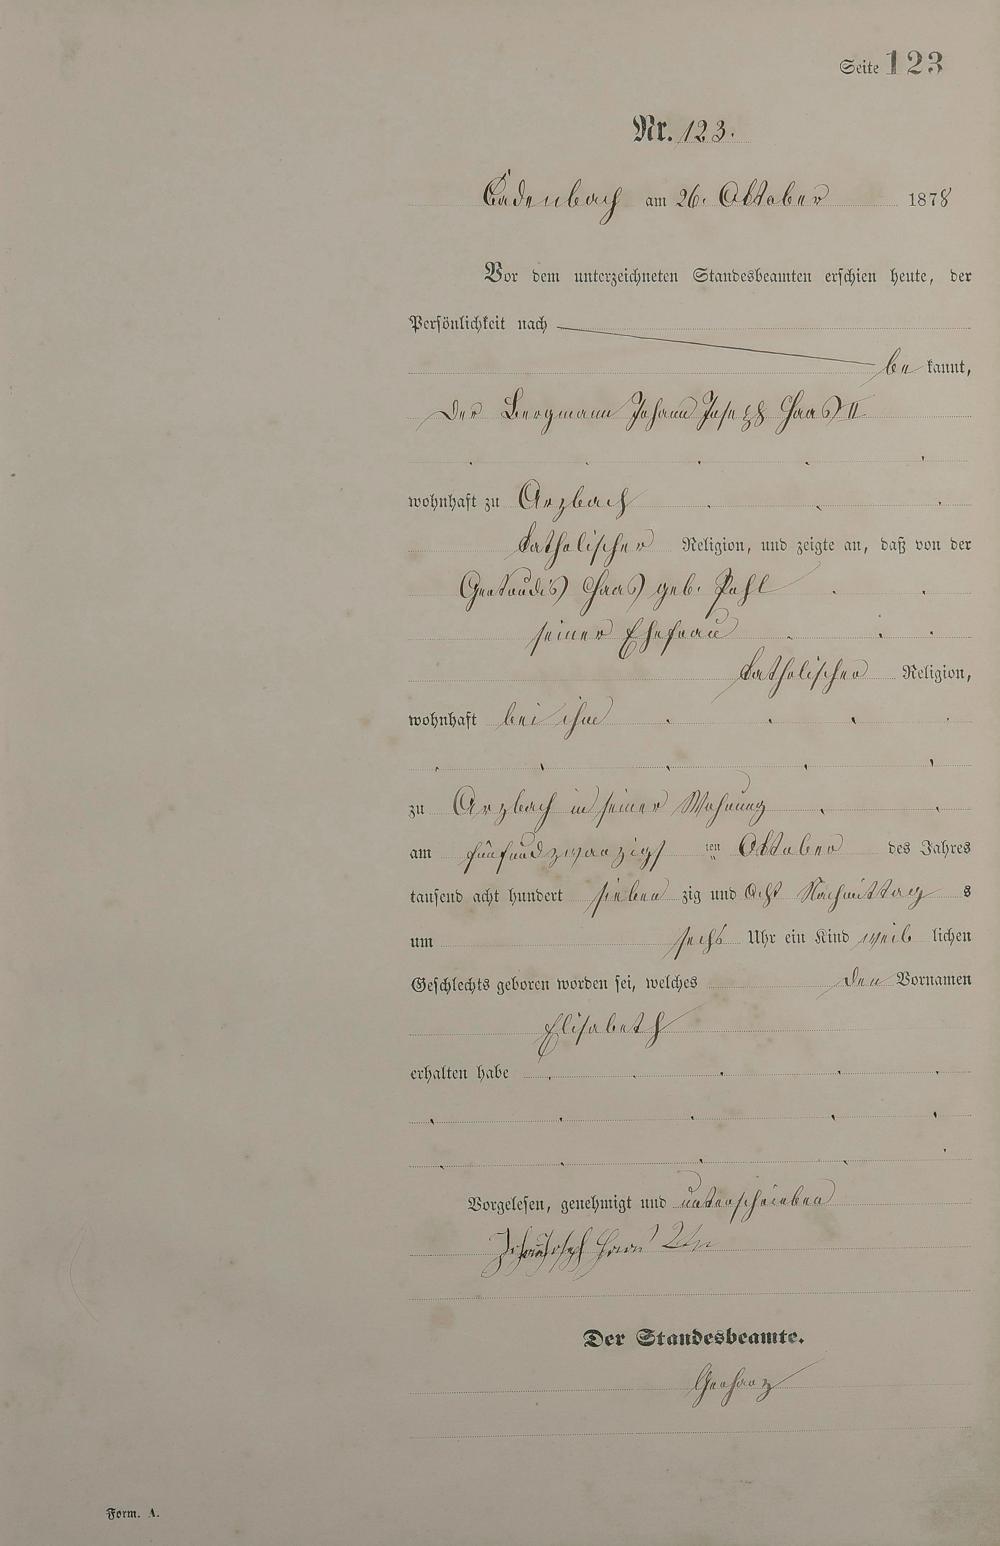 Seite 123
Nr. 123.
Cadenbach am 26. Oktober 1878
Vor dem unterzeichneten Standesbeamten erschien heute, der
Persönlichkeit nach
be kannt,
der Bergmann Johann Joseph Haas II
wohnhaft zu Arzbach
katholischer Religion, und zeigte an, daß von der
Gertrudis Haas geb. Pehl
seiner Ehefrau
katholischer Religion,
wohnhaft bei ihm
zu Arzbach in seiner Wohnung
am fünfundzwanzigs ten Oktober des Jahres
tausend acht hundert sieben zig und acht Nachmittag s
um sechs Uhr ein Kind weib lichen
Geschlechts geboren worden sei, welches den Vornamen
Elisabeth
erhalten habe
Vorgelesen, genehmigt und unterschrieben
Johann Joseph Haas 2ter
Der Standesbeamte.
Gerharz
Form. A.